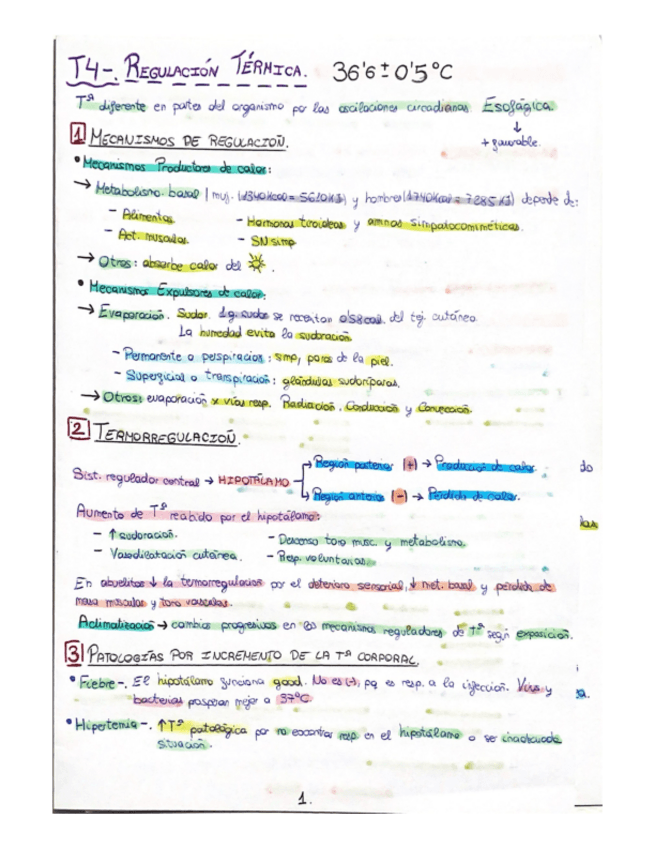 T4-. REGULACIÓN TÉRMICA. 36'6 ± 0'5 ºC
Tª diferente en partes del organismo por las oscilaciones circadianas. Esofágica.
↓
+ favorable.
1 MECANISMOS DE REGULACIÓN.
• Mecanismos Productores de calor:
→ Metabolismo basal | muj. (1340 Kcal = 5610 KJ) y hombre (1740 Kcal = 7285 KJ) depende de:
- Alimentos - Hormonas tiroideas y aminas simpaticomiméticas.
- Act. muscular. - SN simp
→ Otros: absorbe calor del
• Mecanismos Expulsores de calor:
→ Evaporación. Sudor. 1g sudor se necesitan 0'58 cal. del tej. cutáneo.
La humedad evita la sudoración.
- Permanente o perspiración: smp, poros de la piel.
- Superficial o transpiración: glándulas sudoríparas.
→ Otros: evaporación x vías resp. Radiación. Conducción y Convección.
2 TERMORREGULACIÓN.
Sist. regulador central → HIPOTÁLAMO
Región posterior (+) → Producción de calor.
Región anterior (-) → Pérdida de calor.
Aumento de Tª recibido por el hipotálamo:
- ↑ sudoración. - Descenso tono musc. y metabolismo.
- Vasodilatación cutánea. - Resp. voluntarias.
En abuelitos ↓ la termorregulación por el deterioro sensorial, ↓ met. basal y pérdida de
masa muscular y tono vascular.
Aclimatización → cambios progresivos en los mecanismos reguladores de Tª según exposición.
3 PATOLOGÍAS POR INCREMENTO DE LA Tª CORPORAL.
• Fiebre-. El hipotálamo funciona good. No es (-), pq es resp. a la infección. Virus y
bacterias prosperan mejor a 37ºC.
• Hipertermia-. ↑Tª patológica por no encontrar resp. en el hipotálamo o ser inadecuada
situación.
1.